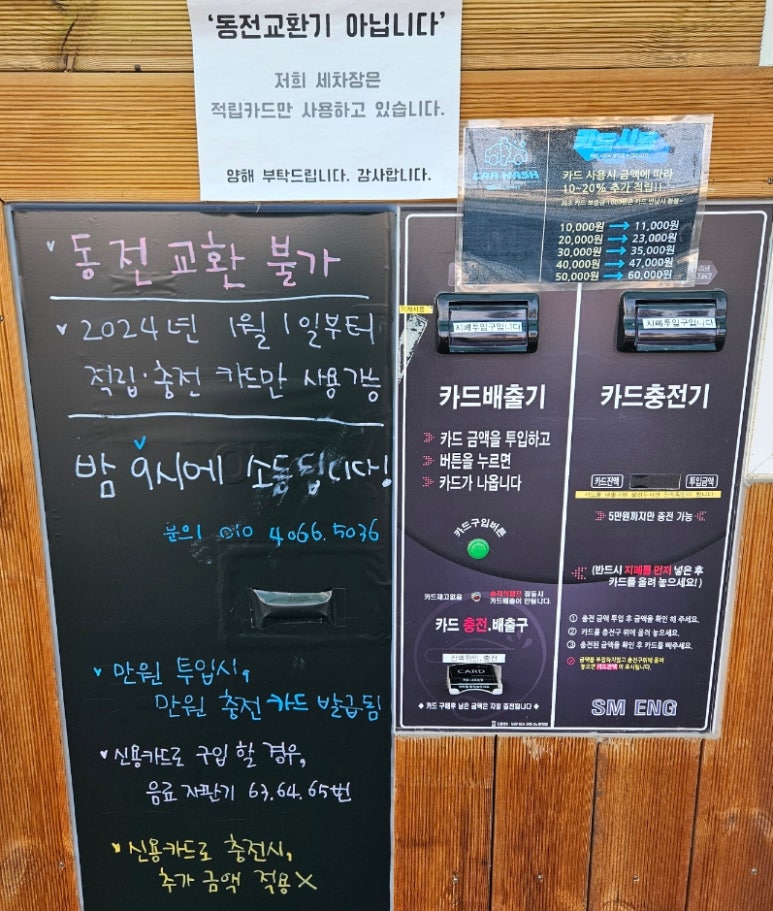 '동전교환기 아닙니다'
저희 세차장은
적립카드만 사용하고 있습니다.
양해 부탁드립니다. 감사합니다.
동전교환 불가
2024년 1월 1일부터
적립·충전 카드만 사용가능
밤 9시에 소등됩니다!
문의 010 4066.5036
만원 투입시,
만원 충전 카드 발급됨
신용카드로 구입 할 경우,
음료 자판기 63.64.65번
신용카드로 충전시,
추가 금액 적용 X
CAR WASH
카드 사용시 금액에 따라
10~20% 추가 적립!!
10,000원 → 11,000원
20,000원 → 23,000원
30,000원 → 35,000원
40,000원 → 47,000원
50,000원 → 60,000원
지폐투입구입니다
카드배출기
카드 금액을 투입하고
버튼을 누르면
카드가 나옵니다
카드구입버튼
카드재고없음
점등시
카드배출이 안됩니다.
카드 충전.배출구
잔액확인.충전
CARD
◆ 카드 구매후 남은 금액은 자동 충전됩니다 ◆
지폐투입구입니다
카드충전기
카드잔액 투입금액
5만원까지만 충전 가능
(반드시 지폐를 먼저 넣은 후
카드를 올려 놓으세요!)
① 충전 금액 투입 후 금액을 확인 해 주세요.
② 카드를 충전구 위에 올려 놓으세요.
③ 충전된 금액을 확인 후 카드를 빼주세요.
금액을 투입하지않고 충전구위에 올려
놓으면 카드잔액이 표시됩니다.
SM ENG